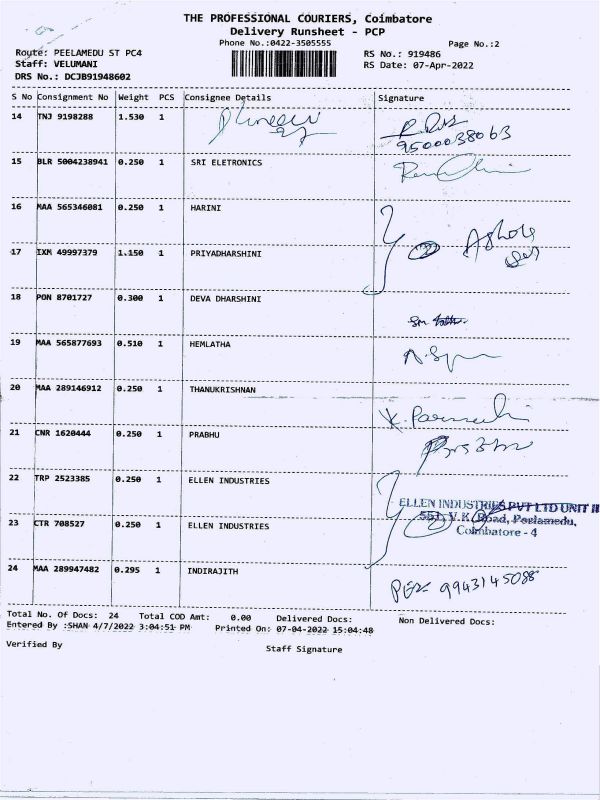 THE PROFESSIONAL COURIERS, Coimbatore
Delivery Runsheet - PCP
Phone No.:0422-3505555 Page No.:2
Route: PEELAMEDU ST PC4 RS No.: 919486
Staff: VELUMANI RS Date: 07-Apr-2022
DRS No.: DCJB91948602
S No Consignment No Weight PCS Consignee Details Signature
14 TNJ 9198288 1.530 1
9500038063
15 BLR 5004238941 0.250 1 SRI ELETRONICS
16 MAA 565346081 0.250 1 HARINI
Ashok
17 IXM 49997379 1.150 1 PRIYADHARSHINI
18 PON 8701727 0.300 1 DEVA DHARSHINI
19 MAA 565877693 0.510 1 HEMLATHA
20 MAA 289146912 0.250 1 THANUKRISHNAN
21 CNR 1620444 0.250 1 PRABHU
22 TRP 2523385 0.250 1 ELLEN INDUSTRIES
ELLEN INDUSTRIES PVT LTD UNIT II
551, V.K.Road, Peelamedu,
Coimbatore - 4
23 CTR 708527 0.250 1 ELLEN INDUSTRIES
24 MAA 289947482 0.295 1 INDIRAJITH
9943145088
Total No. Of Docs: 24 Total COD Amt: 0.00 Delivered Docs: Non Delivered Docs:
Entered By :SHAN 4/7/2022 3:04:51 PM Printed On: 07-04-2022 15:04:48
Verified By Staff Signature